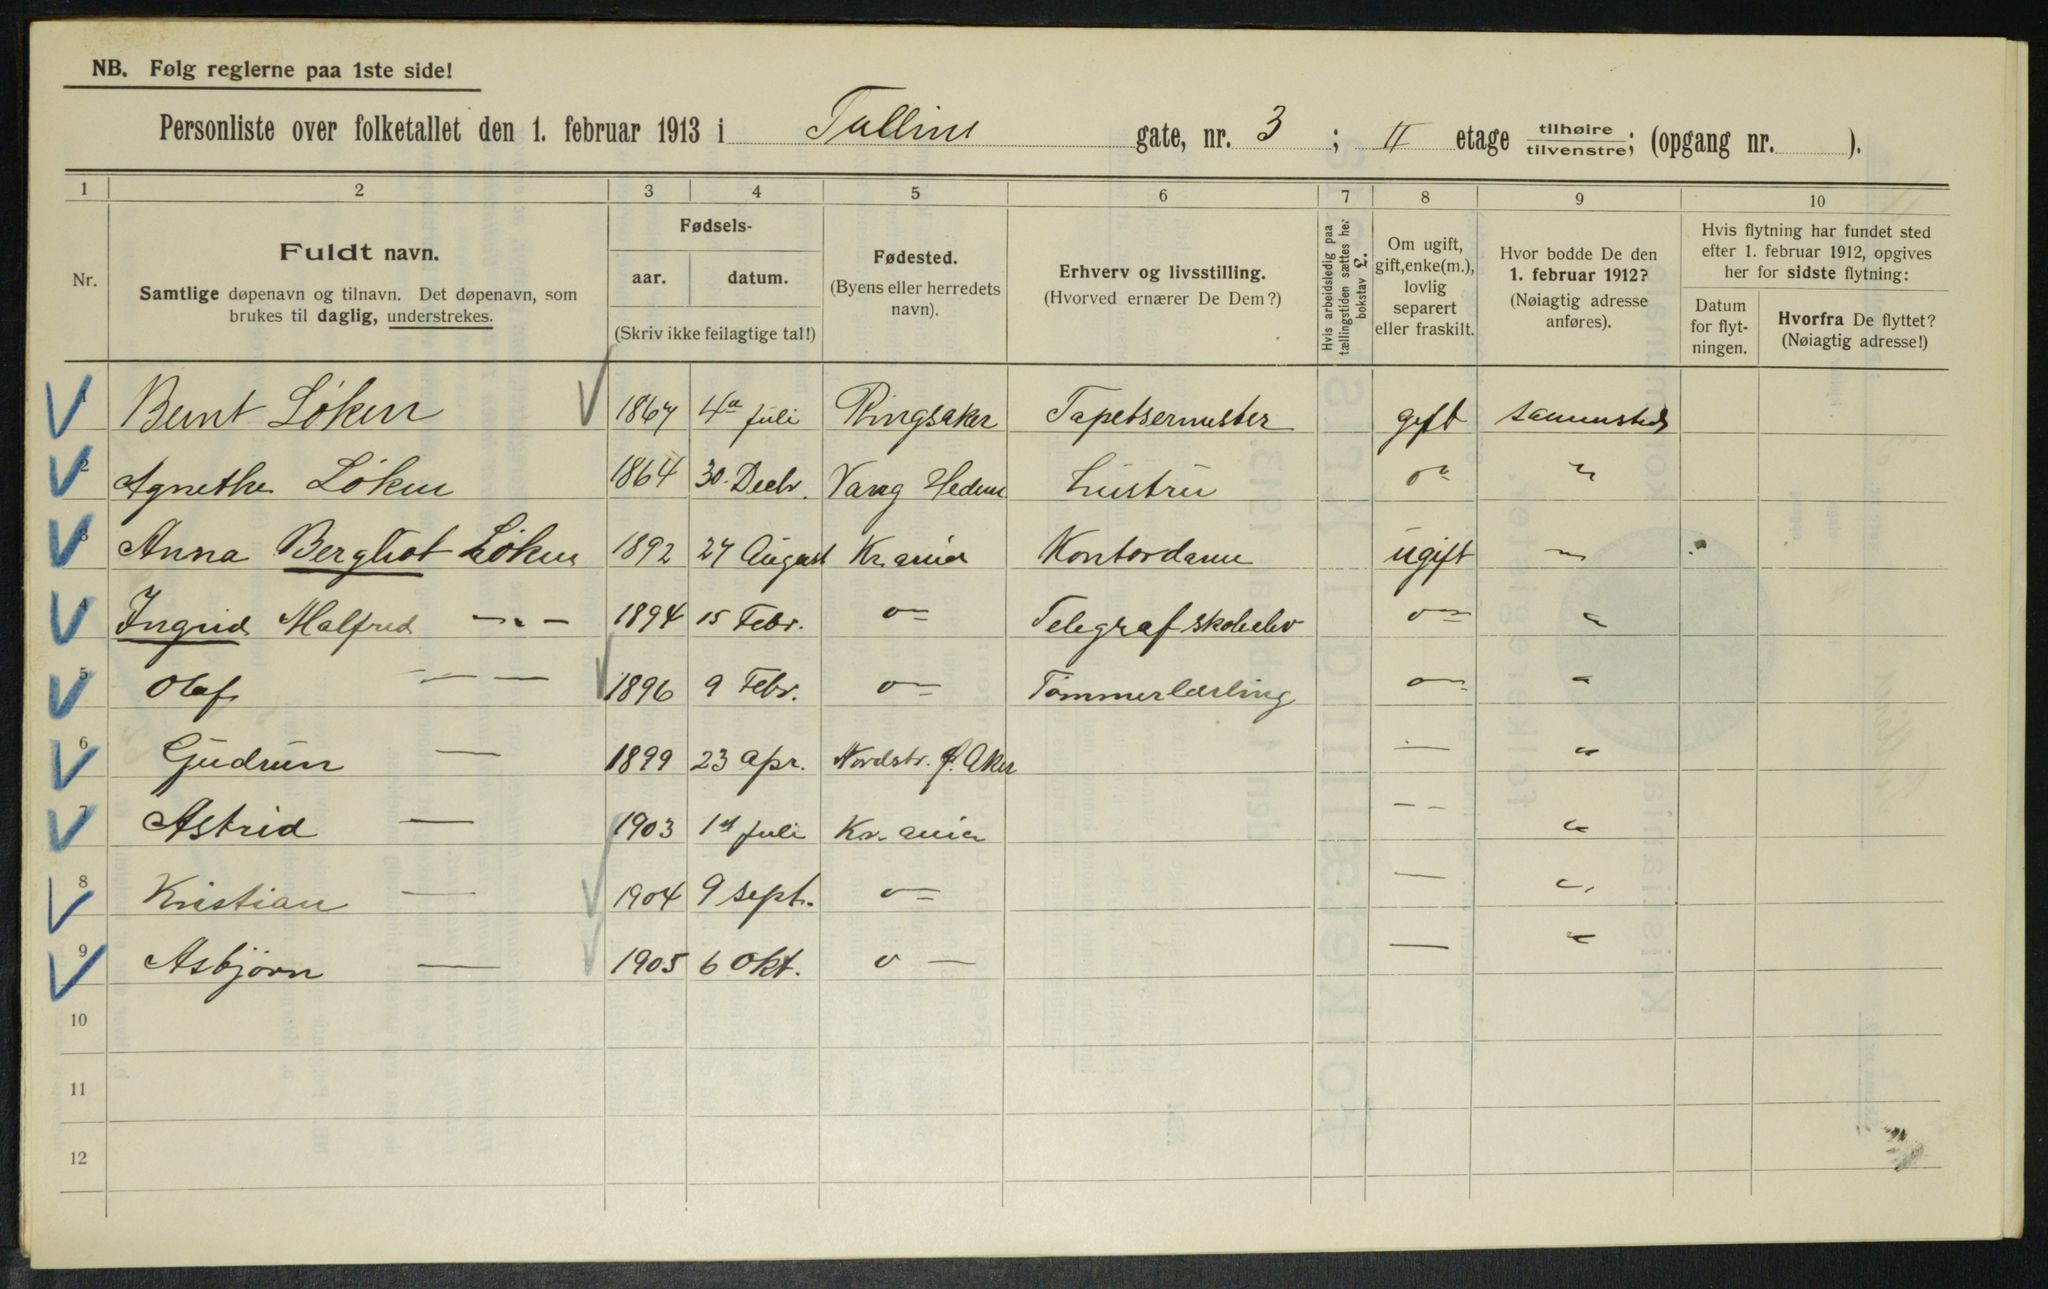 NB. Følg reglerne paa 1ste side!
Personliste over folketallet den 1. februar 1913 i Tullins gate, nr. 3 ; II etage tilhøire tilvenstre; (opgang nr. ).
1 2 3 4 5 6 7 8 9 10
Nr.
Fuldt navn.
Samtlige døpenavn og tilnavn. Det døpenavn, som
brukes til daglig, understrekes.
Fødsels-
aar. datum.
(Skriv ikke feilagtige tal!)
Fødested.
(Byens eller herredets
navn).
Erhverv og livsstilling.
(Hvorved ernærer De Dem?)
Hvis arbeidsledig paa
tællingstiden sættes her
bokstav L.
Om ugift,
gift, enke(m.),
lovlig
separert
eller fraskilt.
Hvor bodde De den
1. februar 1912?
(Nøiagtig adresse
anføres).
Hvis flytning har fundet sted
efter 1. februar 1912, opgives
her for sidste flytning:
Datum
for flyt-
ningen.
Hvorfra De flyttet?
(Nøiagtig adresse!)
1 Bernt Løken 1867 4de Juli Ringsaker Tapetsermester gift sammesteds
2 Agnethe Løken 1864 30. Decbr. Vang Hedm Hustru o " "
3 Anna Bergliot Løken 1892 27 August Kr.ania Kontordame ugift "
4 Ingrid Malfred — " — 1894 15 Febr. o — Telegrafskoleelev o — "
5 Olaf — — — 1896 9 Febr. o — Tømmerlærling o — "
6 Gudrun — 1899 23 apr. Nordstr. P. Aker — "
7 Astrid — 1903 1st Juli Kr.ania – – "
8 Kristian — 1904 9 sept. o — — "
9 Asbjørn — 1905 6 Okt. o — — "
10
11
12